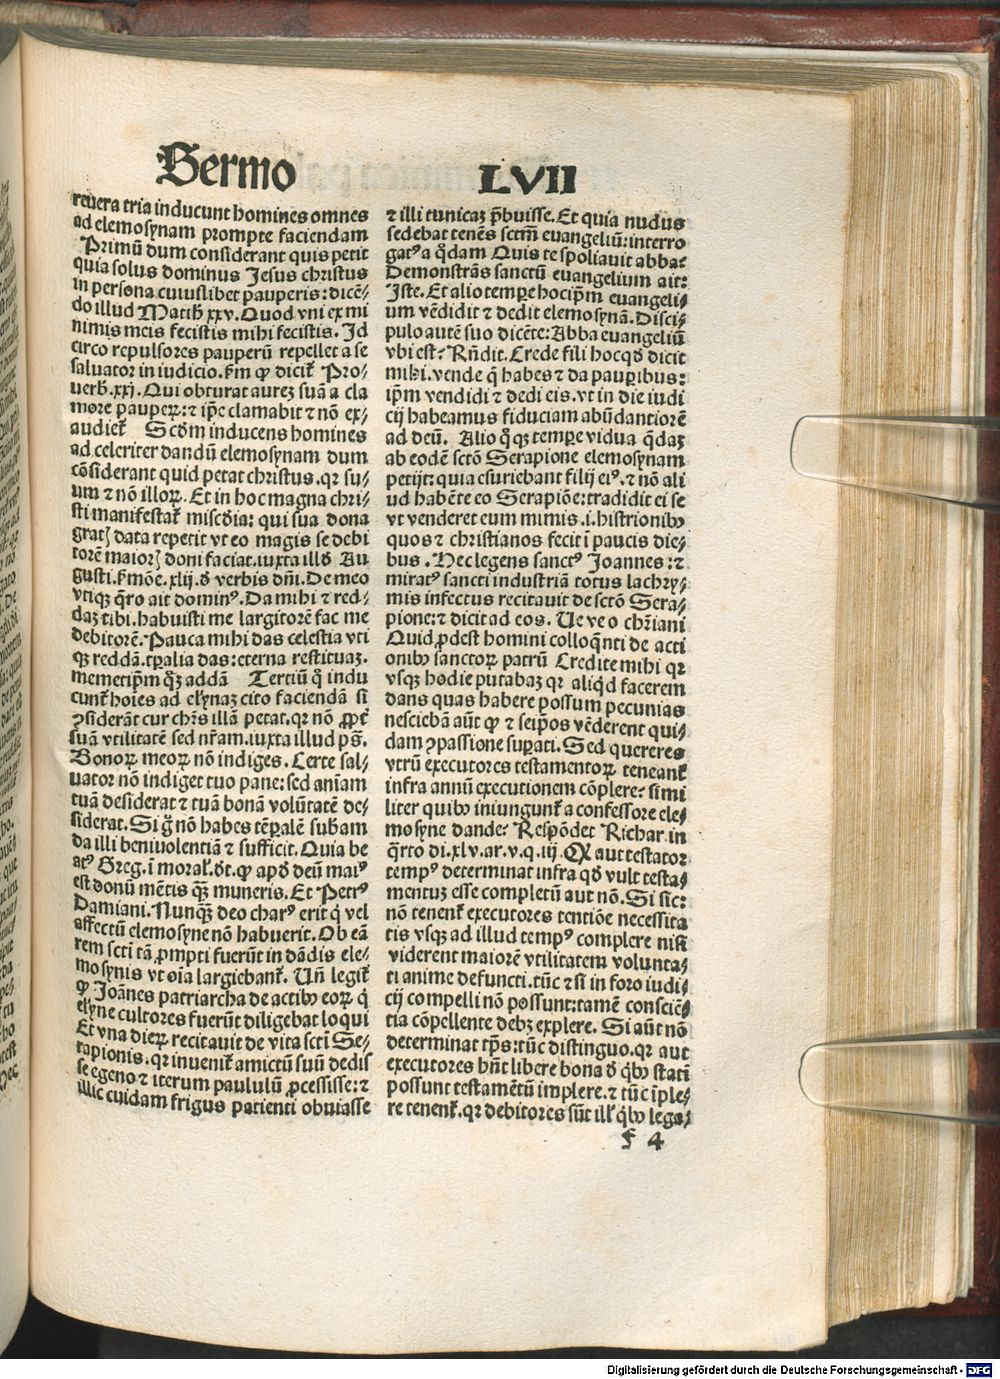 Sermo LVII
revera tria inducunt homines omnes
ad elemosynam prompte faciendam
Primū dum considerant quis petit
quia solus dominus Jesus christus
in persona cuiuslibet pauperis: dicē⸗
do illud Matth xxv. Quod vni ex mi
nimis meis fecistis mihi fecistis. Id
circo repulsores pauperū repellet a se
saluator in iudicio. ẜm ꝙ dicit᷑ Pro⸗
uerb. xxj. Qui obturat aurez suā a cla
more pauperꝭ: ⁊ ip̄e clamabit ⁊ nō ex⸗
audiet᷑ Scḋm inducens homines
ad celeriter dandū elemosynam dum
cōsiderant quid petat christus. qꝛ su⸗
um ⁊ nō illoꝝ. Et in hoc magna chri⸗
sti manifestat᷑ miscḋia: qui sua dona
gratꝭ data repetit vt eo magis se debi
torē maiorꝭ doni faciat. iuxta illḋ Au
gusti. ẜmōe. xlij. ḋ verbis dn̄i. De meo
vtiqꝫ q̄ro ait dominꝰ. Da mihi ⁊ red⸗
daꝫ tibi. habuisti me largitorē fac me
debitorē. Pauca mihi das celestia vti
qꝫ reddā. tꝑalia das: eterna restituaꝫ.
memetip̄m qꝫ addā Tertiū q̇ indu
cunt᷑ hoies ad elynaꝫ cito faciendā si
ꝯsiderāt cur chr̄s illā petat. qꝛ nō ꝓpt᷑
suā vtilitatē sed nr̄am. iuxta illud ps̄.
Bonoꝝ meoꝝ nō indiges. Certe sal⸗
uator nō indiget tuo pane: sed aniam
tuā desiderat ⁊ tuā bonā volūtatē de⸗
siderat. Si g̊ nō habes tēꝑalē subam
da illi beniuolentiā ⁊ sufficit. Quia be
atꝰ Greg. i moral᷑. ḋt. ꝙ apḋ deū maiꝰ
est donū mētis qꝫ muneris. Et Petrꝰ
Damiani. Nunqꝫ deo charꝰ erit q̇ vel
affectū elemosyne nō habuerit. Ob eā
rem scti tā ꝓmpti fuerūt in dādis ele⸗
mosynis vt oīa largiebant᷑. Un̄ legit᷑
ꝙ Joānes patriarcha de actibꝰ eoꝝ q̇
elyne cultores fuerūt diligebat loqui
Et vna dieꝝ recitauit de vita scti Se⸗
rapionis. qꝛ inuenit᷑ amictū suū dedis
se egeno ⁊ iterum paululū ꝓcessisse: ⁊
illic cuidam frigus patienti obuiasse
⁊ illi tunicaꝫ p̄buisse. Et quia nudus
sedebat tenēs sctm̄ euangeliū: interro
gatꝰ a q̇dam Quis te spoliauit abba?
Demonstrās sanctū euangelium ait:
Iste. Et alio tempꝛe hocip̄m euangeli⸗
um vēdidit ⁊ dedit elemosynā. Disci⸗
pulo autē suo dicēte: Abba euangeliū
vbi est? Rn̄dit. Crede fili hocqḋ dicit
mihi. vende q̄ habes ⁊ da pauꝑibus:
ip̄m vendidi ⁊ dedi eis. vt in die iudi
cij habeamus fiduciam abūdantiorē
ad deū. Alio q̊qꝫ tempꝛe vidua q̄daꝫ
ab eodē sctō Serapione elemosynam
petijt: quia esuriebant filij eiꝰ. ⁊ nō ali
ud habēte eo Serapiōe: tradidit ei se
vt venderet eum mimis. i. histrionibꝰ
quos ⁊ christianos fecit i paucis die⸗
bus. Hec legens sanctꝰ Joannes: ⁊
miratꝰ sancti industriā totus lachry⸗
mis infectus recitauit de sctō Sera⸗
pione: ⁊ dicit ad eos. Ve ve o chr̄iani
Quid ꝓdest homini colloq̄nti de acti
onibꝰ sanctoꝝ patrū Credite mihi qꝛ
vsqꝫ hodie putabaꝫ qꝛ aliq̇d facerem
dans quas habere possum pecunias
nesciebā aūt ꝙ ⁊ seip̄os vēderent qui⸗
dam ꝯpassione suꝑati. Sed quereres
vtrū executores testamentoꝝ teneant᷑
infra annū executionem cōplere? simi
liter quibꝰ iniungunt᷑ a confessore ele⸗
mosyne dande? Respōdet Richar. in
q̇rto di. xlv. ar. v. q. iij. Qꝛ aut testator
tempꝰ determinat infra qḋ vult testa⸗
mentuꝫ esse completū aut nō. Si sic:
nō tenent᷑ executores tentiōe necessita
tis vsqꝫ ad illud tempꝰ complere nisi
viderent maiorē vtilitatem volunta⸗
ti anime defuncti. tūc ⁊ si in foro iudi⸗
cij compelli nō possunt: tamē consciē⸗
tia cōpellente debꝫ explere. Si aūt nō
determinat tp̄s: tūc distinguo. qꝛ aut
executores hn̄t libere bona ḋ q̇bꝰ stati
possunt testamētū implere. ⁊ tūc iple⸗
re tenent᷑. qꝛ debitores sūt ill᷑ q̇bꝰ lega⸗
f 4
Digitalisierung gefördert durch die Deutsche Forschungsgemeinschaft - DFG